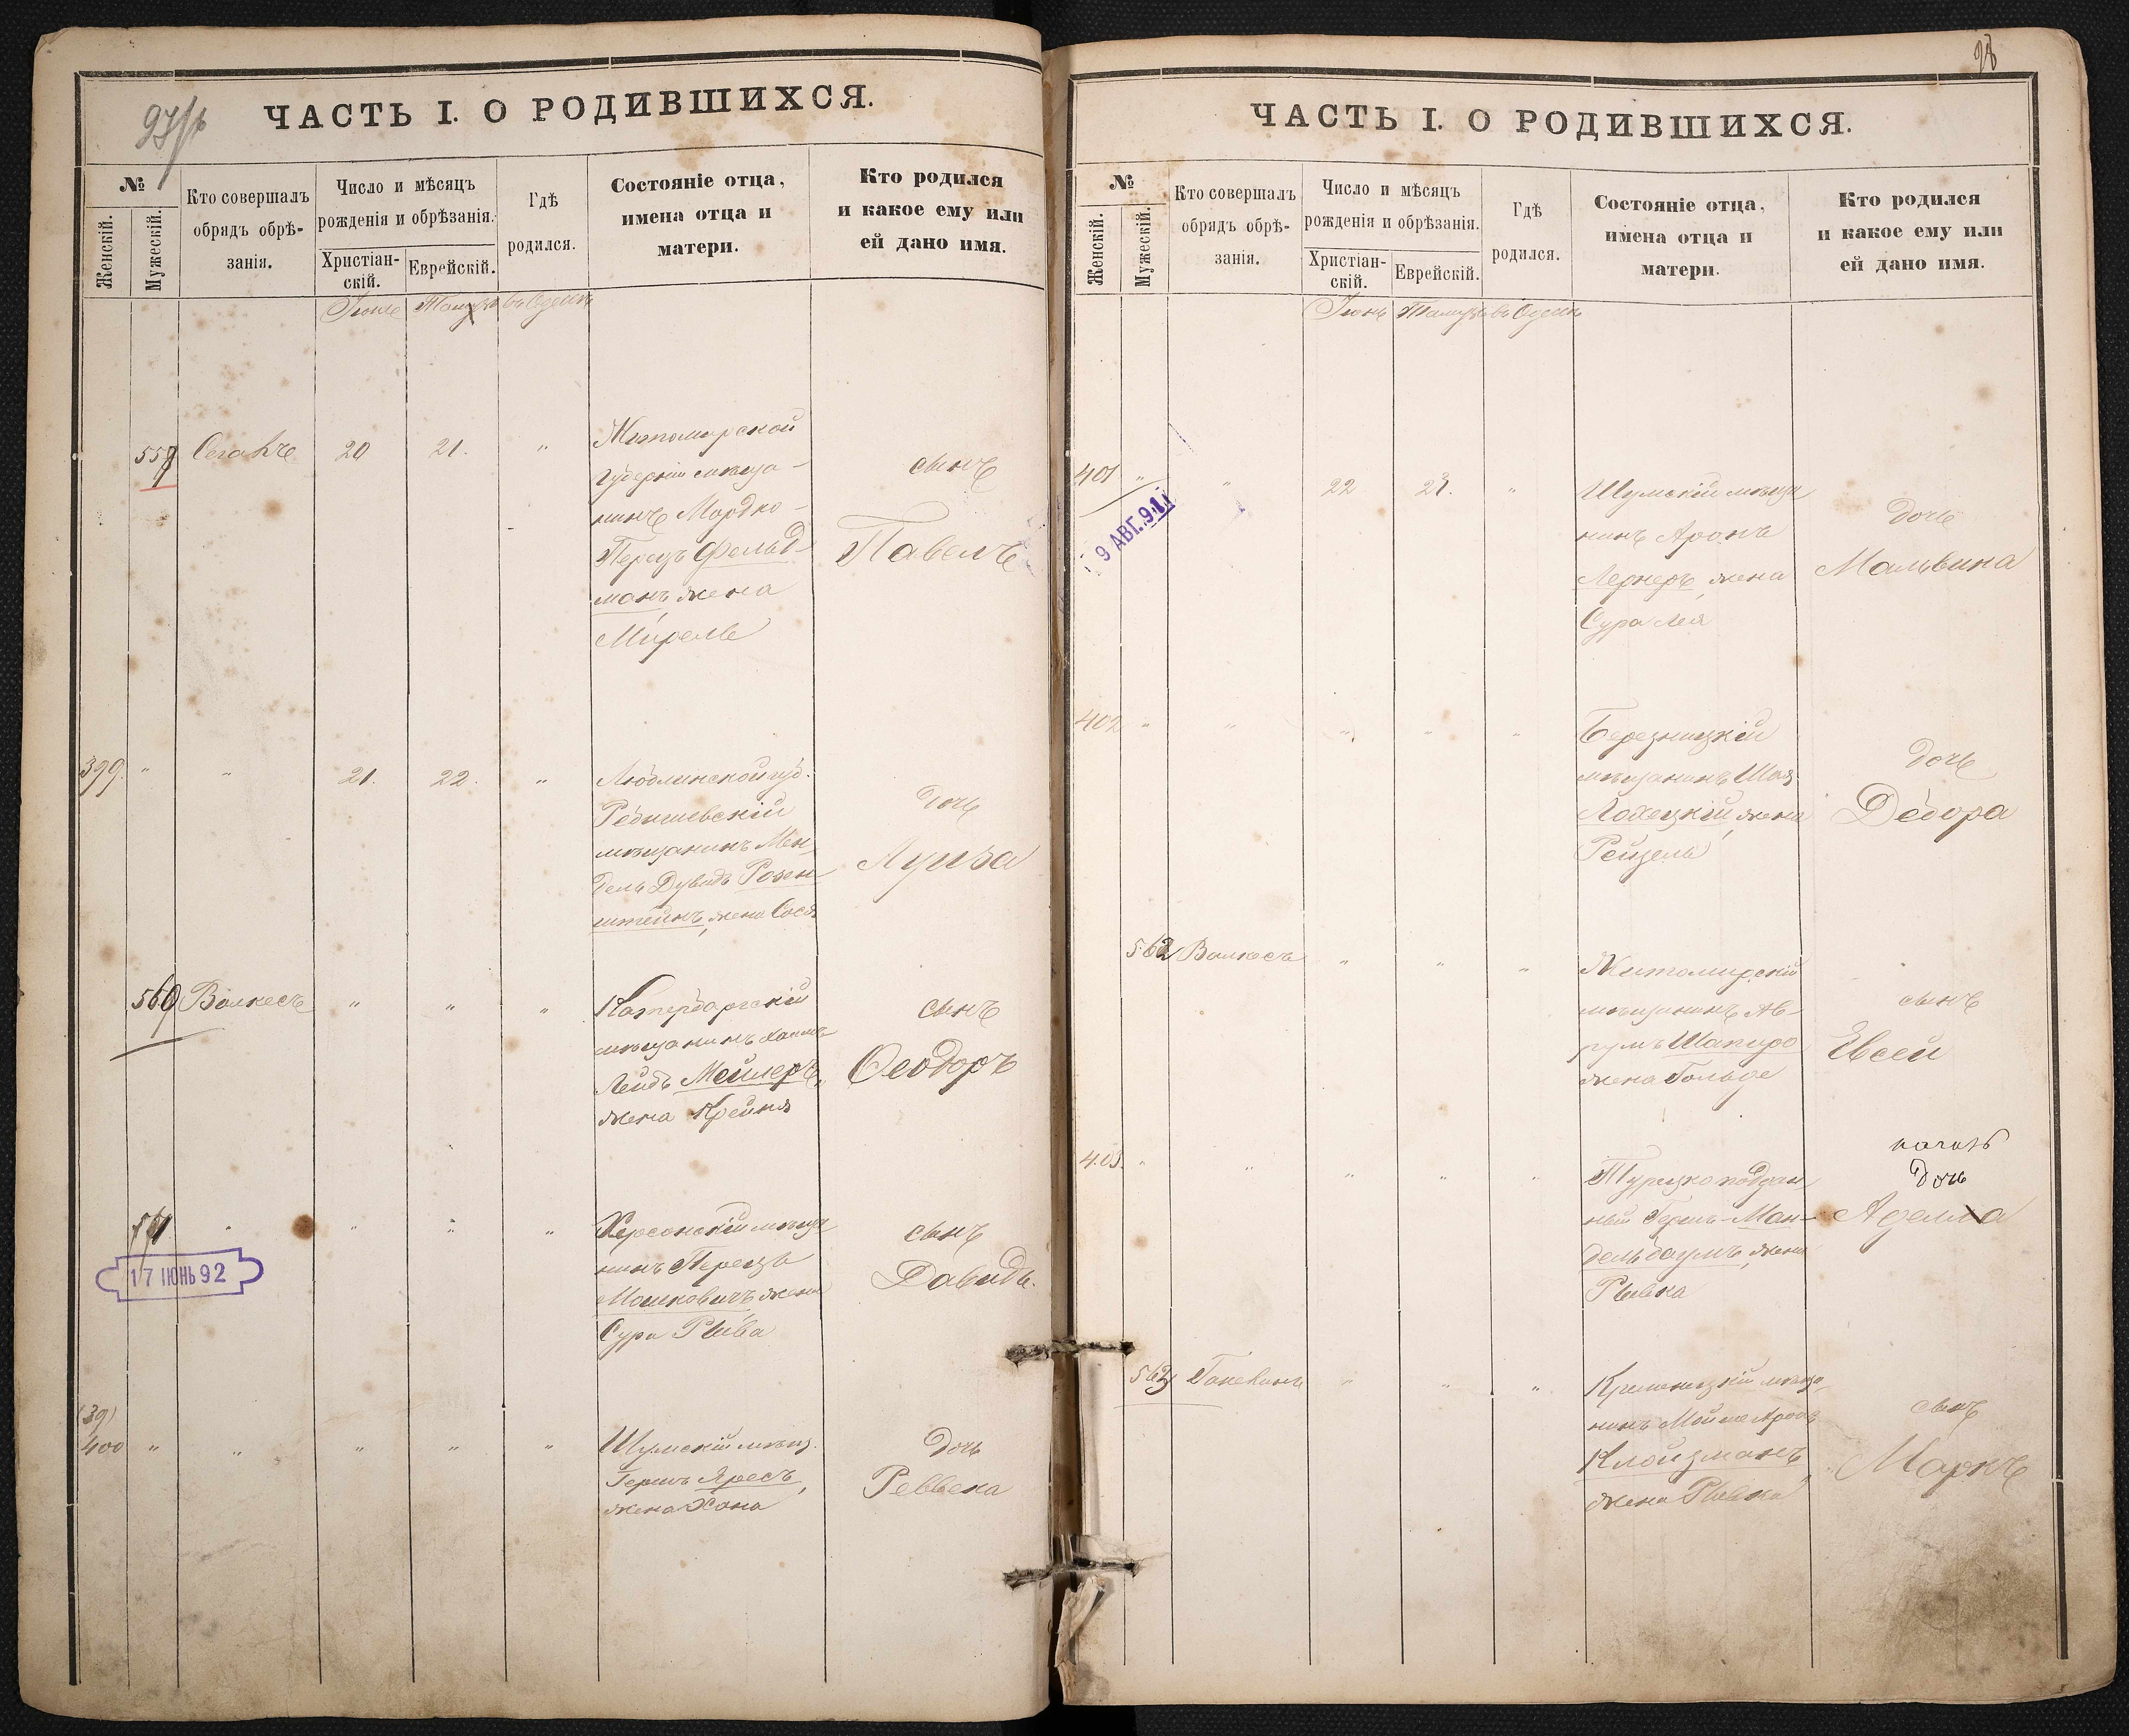 97/
ЧАСТЬ I. О РОДИВШИХСЯ.
№
Женскій.
Мужескій.
Кто совершалъ
обрядъ обрѣ-
занія.
Число и мѣсяцъ
рожденія и обрѣзанія.
Христіан-
скій.
Еврейскій.
Гдѣ
родился.
Состояніе отца,
имена отца и
матери.
Кто родился
и какое ему или
ей дано имя.
Іюнь Тамузъ въ Одессѣ
559 20 21. "
Житомирской
губерніи мѣща-
нинъ Мордко-
Перецъ Фельд-
манъ, жена
Мирель
сынъ
Павелъ
399. " " 21. 22. "
Люблинской губ.
мѣщанинъ Мен-
дель Дувидъ Розен-
штейнъ, жена Сося
дочь
Луиза
560 Валкесъ " " "
мѣщанинъ Хаимъ
Лейбъ Мейлеръ,
жена Крейня
сынъ
Ѳеодоръ
561 " " " "
17 ІЮНЬ 92
Херсонскій мѣща
нинъ Перецъ
Машковичъ, жена
Сура Рыва
сынъ
Давидъ.
(39)
400 " " " " "
Шумскій мѣщ.
Гершъ Яресъ,
жена Хана
дочь
Реввека
98
ЧАСТЬ I. О РОДИВШИХСЯ.
№
Женскій.
Мужескій.
Кто совершалъ
обрядъ обрѣ-
занія.
Число и мѣсяцъ
рожденія и обрѣзанія.
Христіан-
скій.
Еврейскій.
Гдѣ
родился.
Состояніе отца,
имена отца и
матери.
Кто родился
и какое ему или
ей дано имя.
Іюнь Тамузъ въ Одессѣ
401 " " 22 23. "
9 АВГ. 911
Шумскій мѣща
нинъ Аронъ
Лернеръ, жена
Сура Лея
дочь
Мальвина
402 " " " " "
Березницкій
мѣщанинъ Шая
жена
Рейзель
дочь
Дебора
562 Валкесъ " " "
Житомирскій
мѣщанинъ Ав-
румъ Шапиро
жена Гольде
сынъ
Евсей
403. " " " " "
Турецко поддан
ный Гершъ-Ман-
дельбаумъ, жена
Рывка
дочь
Аделла
563 " " "
Кременецкій мѣща
нинъ Мойше Аронъ
Клойзманъ,
жена Рывка
сынъ
Маркъ